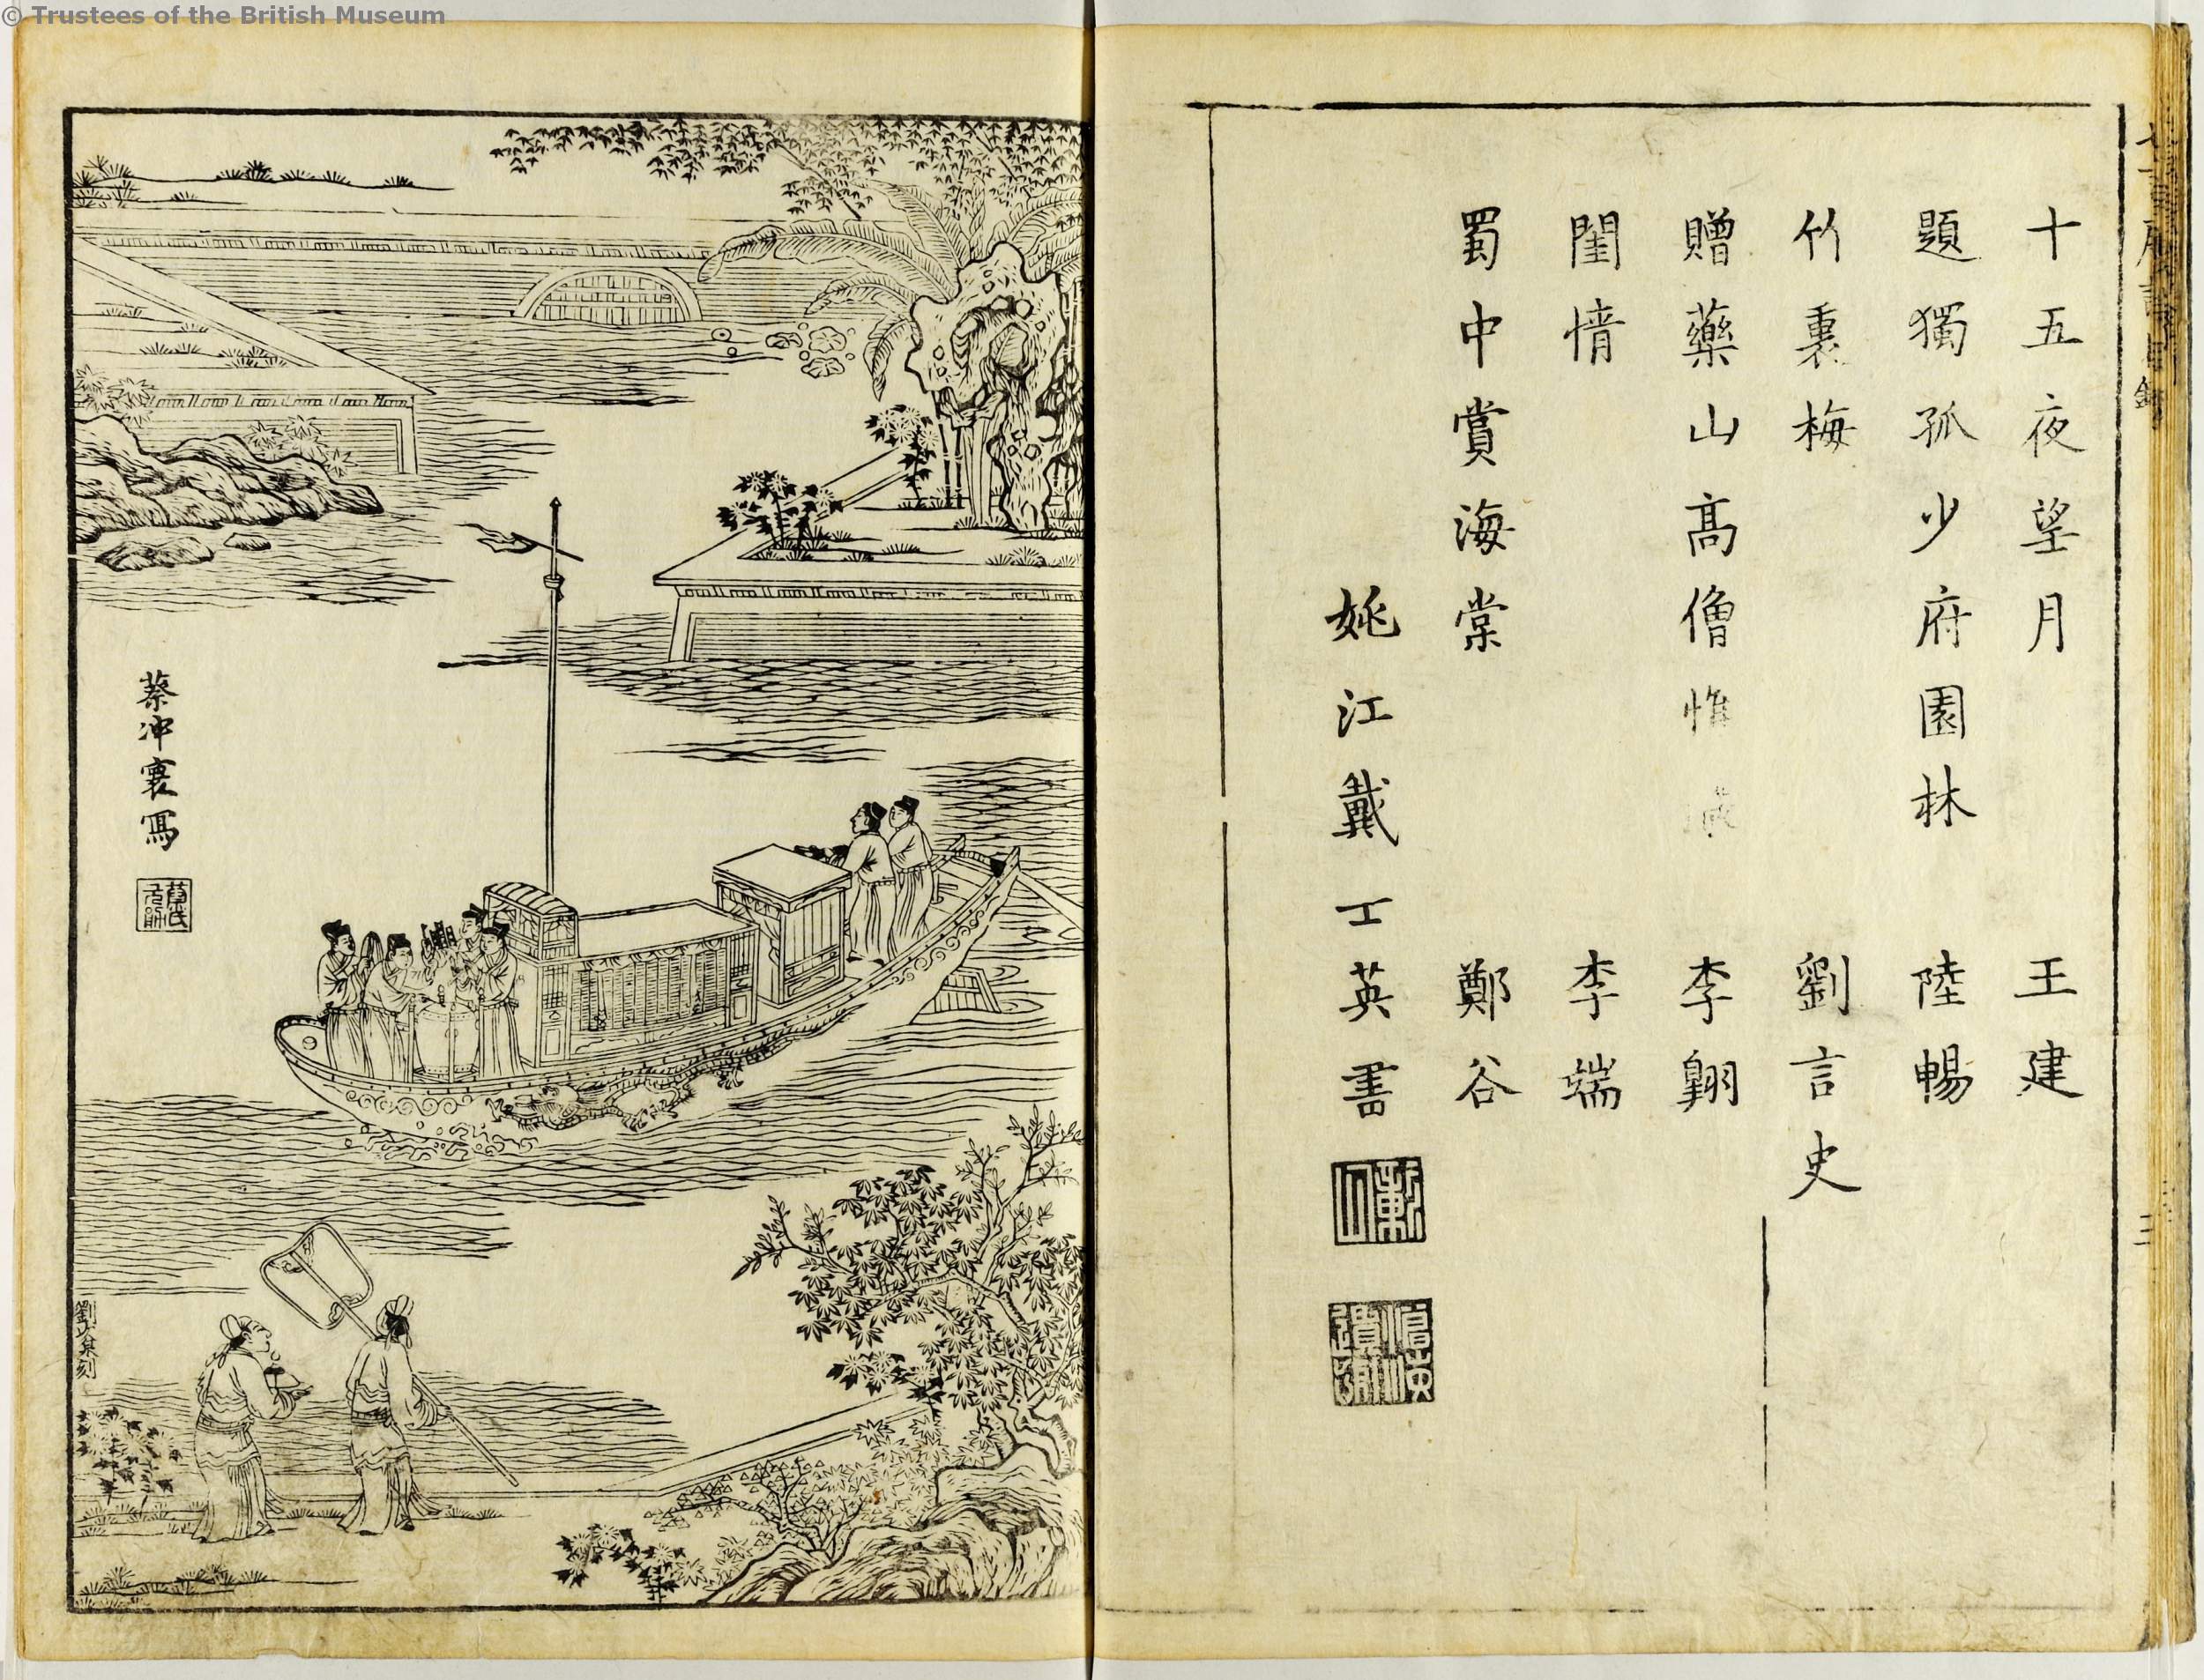 © Trustees of the British Museum
十五夜望月 王建
題獨孤少府園林 陸暢
竹裏梅 劉言史
贈藥山高僧惟 李翱
閨情 李端
蜀中賞海棠 鄭谷
姚江戴士英書
蔡冲寰寫